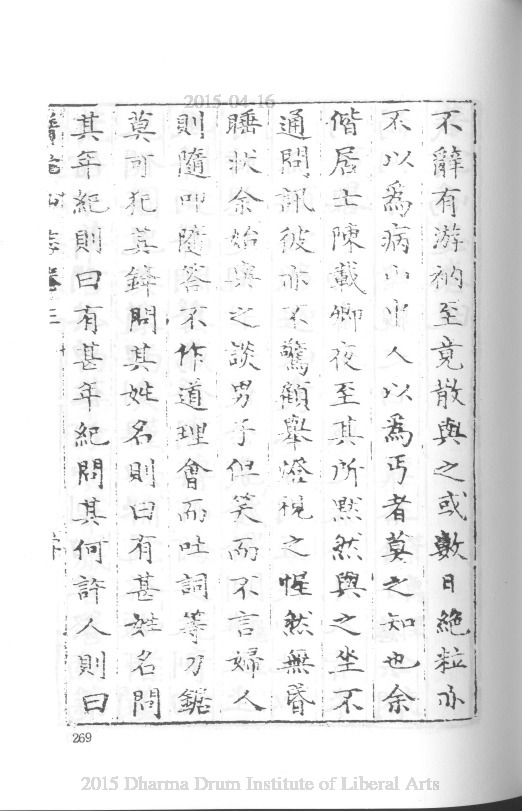 2015-04-16
不辭有游衲至竟散與之或數日絕粒亦
不以為病山中人以為丐者莫之知也余
偕居士陳載卿夜至其所默然與之坐不
通問訊彼亦不驚顧舉燈視之惺然無昏
睡狀余始與之談男子但笑而不言婦人
則隨叩隨答不作道理會而吐詞等刀鋸
莫可犯其鋒問其姓名則曰有甚姓名問
其年紀則曰有甚年紀問其何許人則曰
志卷三
269
2015 Dharma Drum Institute of Liberal Arts